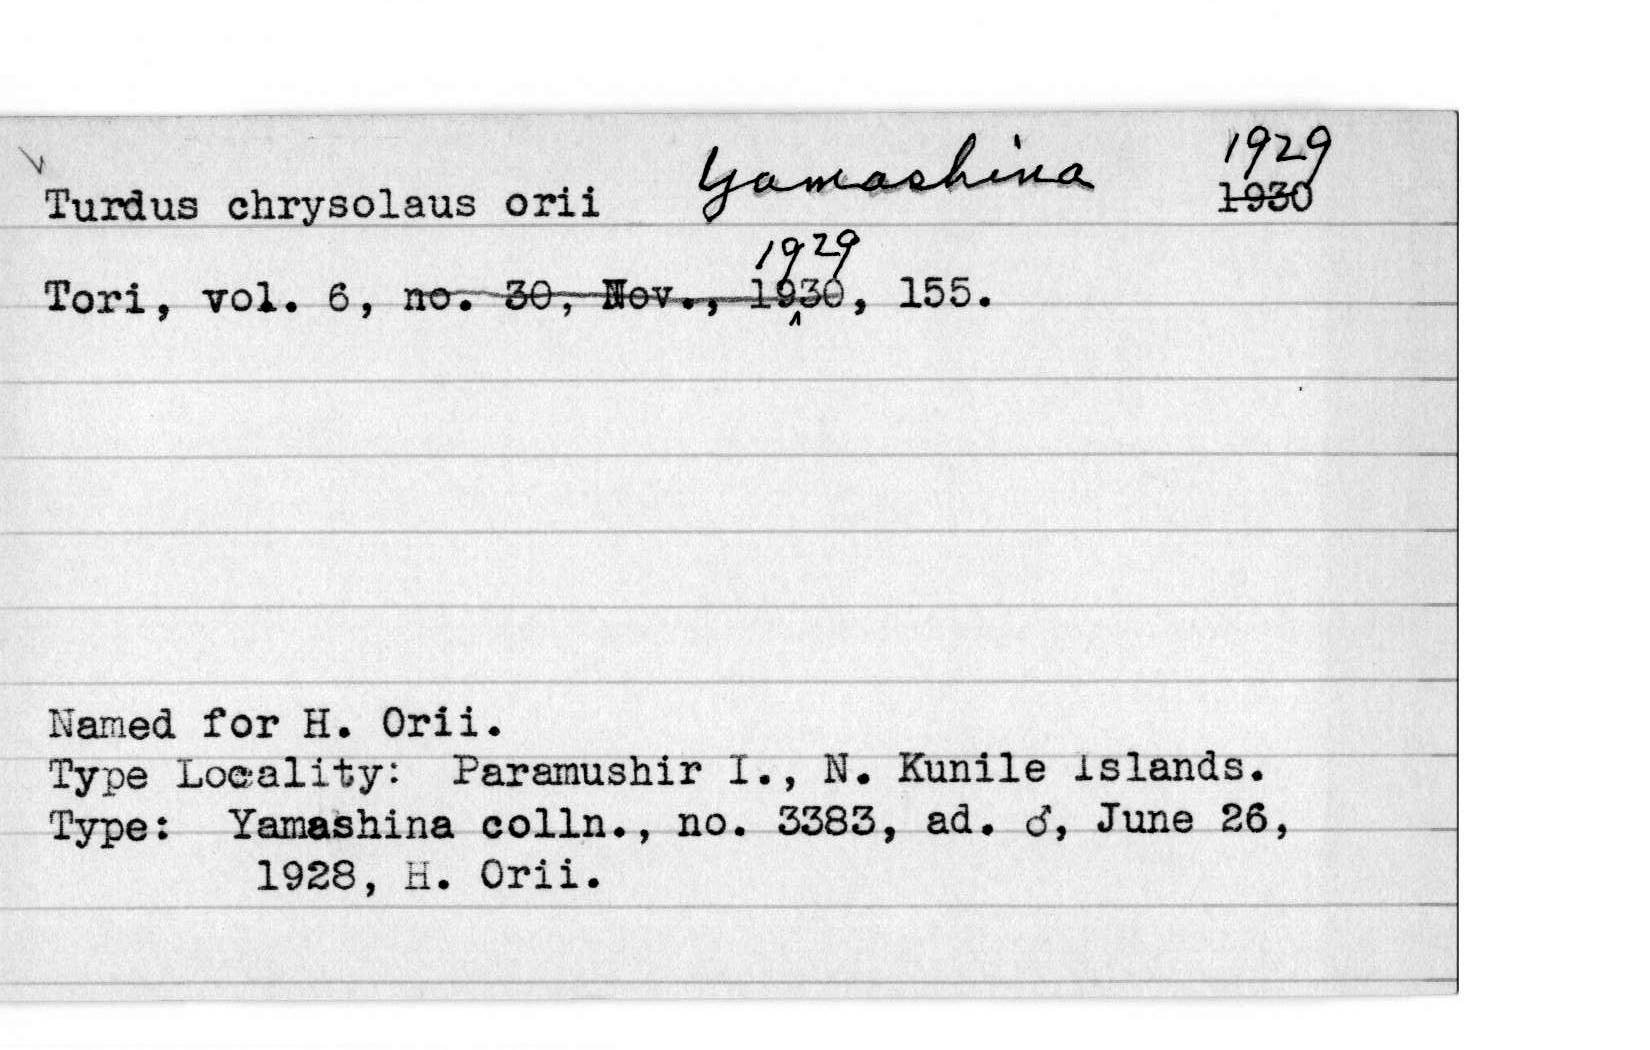 Turdus chrysolaus orii Yamashina 1929
1930
1929
Tori, vol. 6, no. 30, Nov., 1930, 155.
Named for H. Orii.
Type Locality: Paramushir I., N. Kunile Islands.
Type: Yamashina colln., no. 3383, ad. ♂, June 26,
1928, H. Orii.